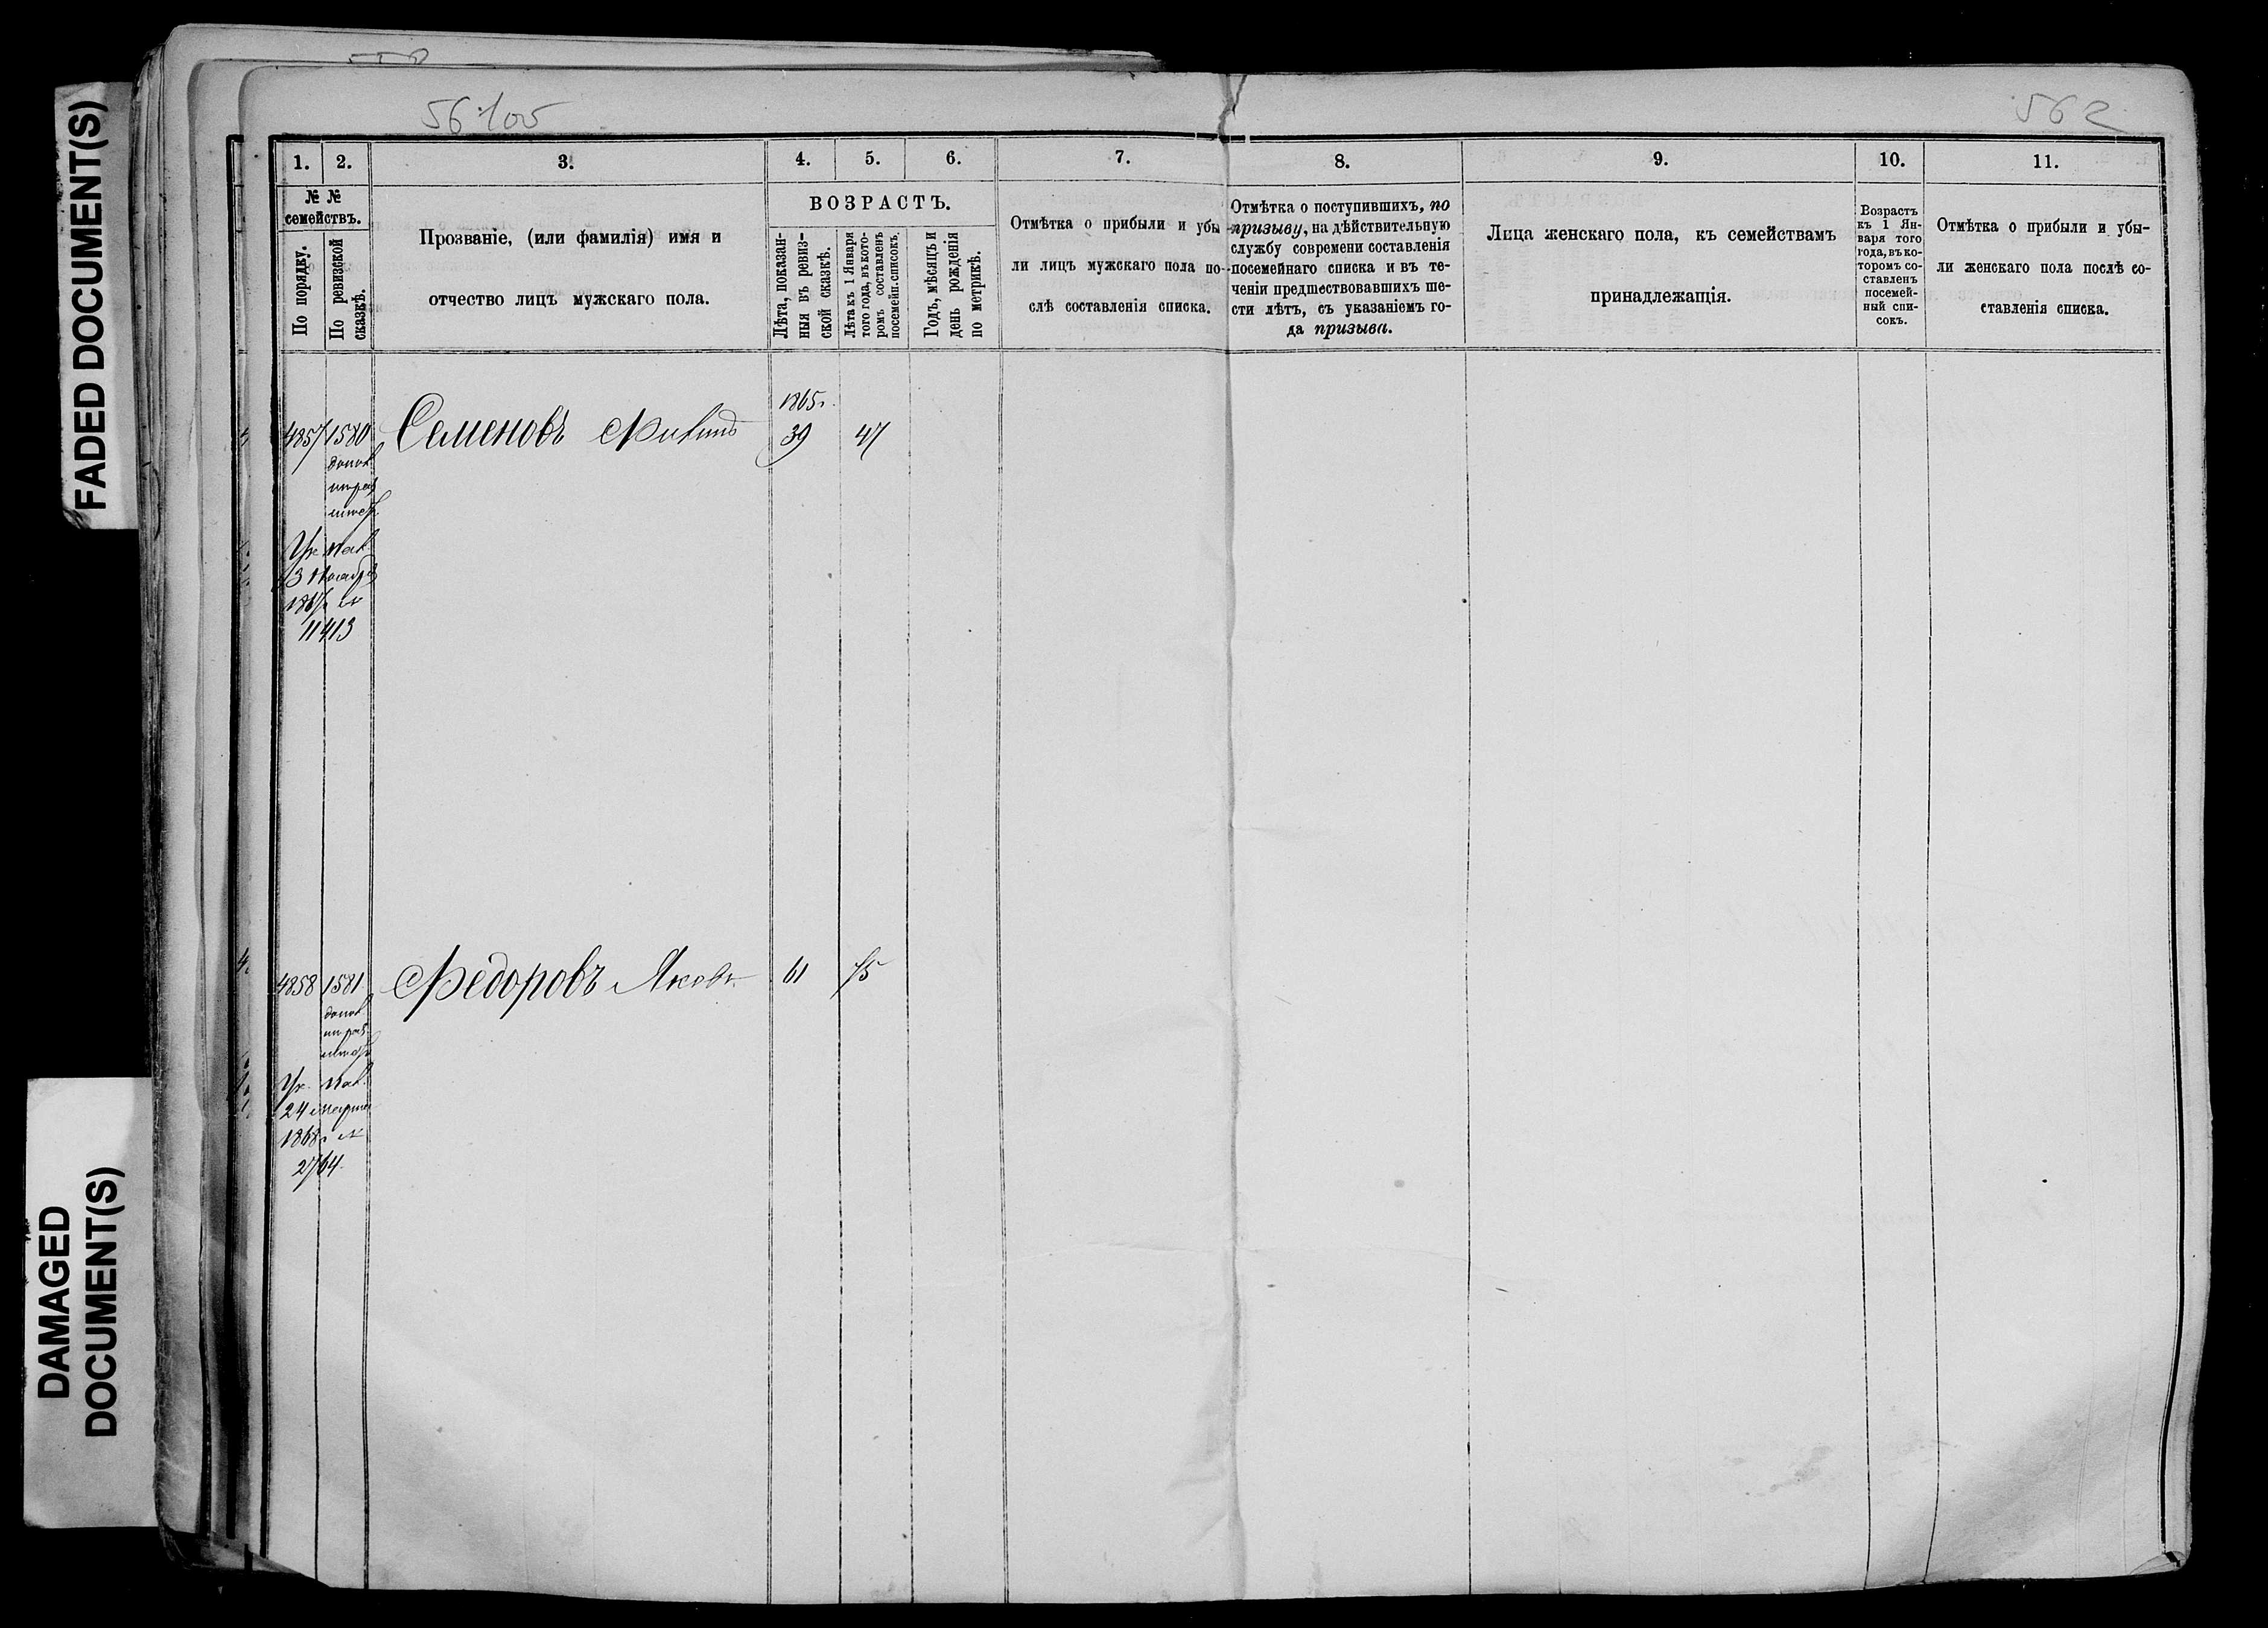 FADED DOCUMENT(S)
DAMAGED
DOCUMENT(S)
562
1.
2.
3.
4.
5.
6.
7.
8.
9.
10.
11.
№ №
семействъ.
По порядку.
По ревизской
сказкѣ.
Прозваніе, (или фамилія) имя и
отчество лицъ мужскаго пола.
ВОЗРАСТЪ.
Лѣта, показан-
ныя въ ревиз-
ской сказкѣ.
Лѣта къ 1 Января
того года, въ кото-
ромъ составленъ
посемейн. списокъ.
Годъ, мѣсяцъ и
день рожденія
по метрикѣ.
Отмѣтка о прибыли и убы
ли лицъ мужскаго пола по-
слѣ составленія списка.
Отмѣтка о поступившихъ, по
призыву, на дѣйствительную
службу современи составленія
посемейнаго списка и въ те-
ченіи предшествовавшихъ ше-
сти лѣтъ, съ указаніемъ го-
да призыва.
Лица женскаго пола, къ семействамъ
принадлежащія.
Возрастъ
къ 1 Ян-
варя того
года, въ ко-
торомъ со-
ставленъ
посемей-
ный спи-
сокъ.
Отмѣтка о прибыли и убы-
ли женскаго пола послѣ со-
ставленія списка.
1865г.
4857 1580 Семеновъ 39 47
Ук. Каз.
1867г. №
11413
4858 1581 Федоровъ Яковъ 61 75
Ук. Каз.
24 марта
1868г. №
2764